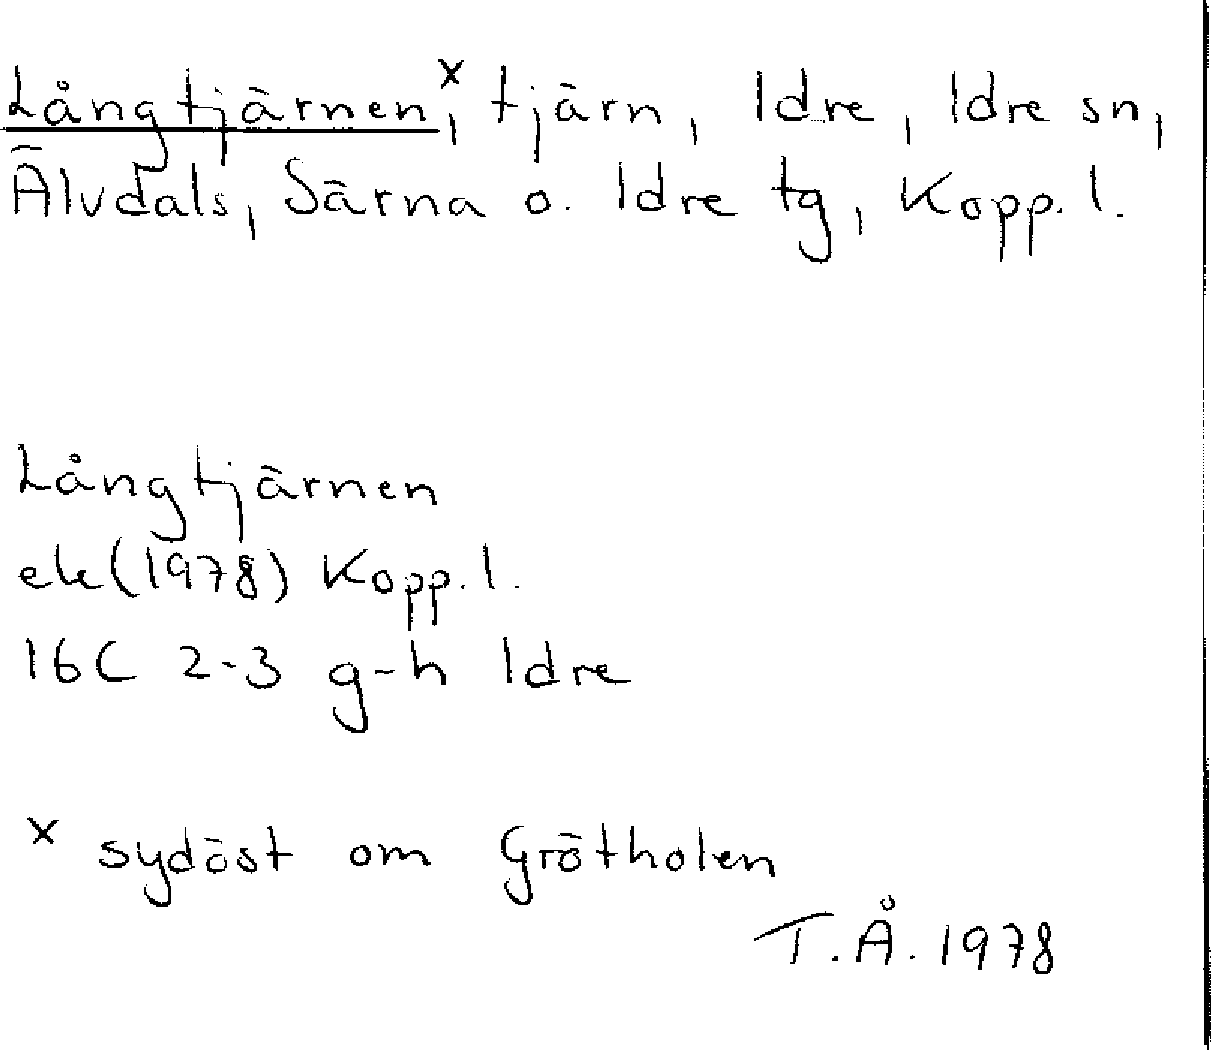 Långtjärnen,ˣ tjärn, Idre, Idre sn,
Älvdals, Särna o. Idre tg, Kopp. l.
Långtjärnen
ek (1978) Kopp. l.
16C 2-3 g-h Idre
x sydöst om Grötholen
T.Å. 1978